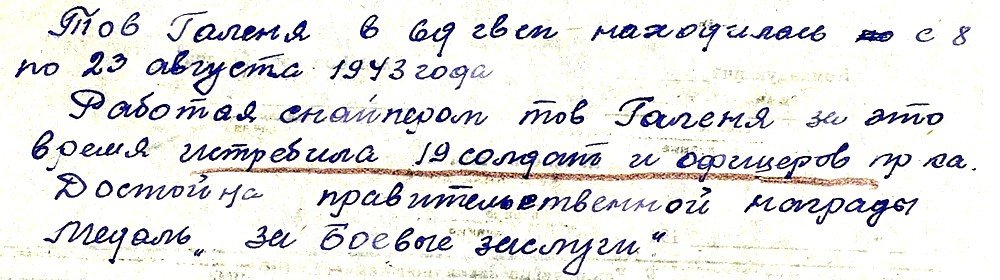 Тов Галеня в 69 гвсп находилась с 8
по 23 августа 1943 года
Работая снайпером тов Галеня за это
время истребила 19 солдат и офицеров пр-ка.
Достойна правительственной награды
Медаль „За Боевые заслуги“